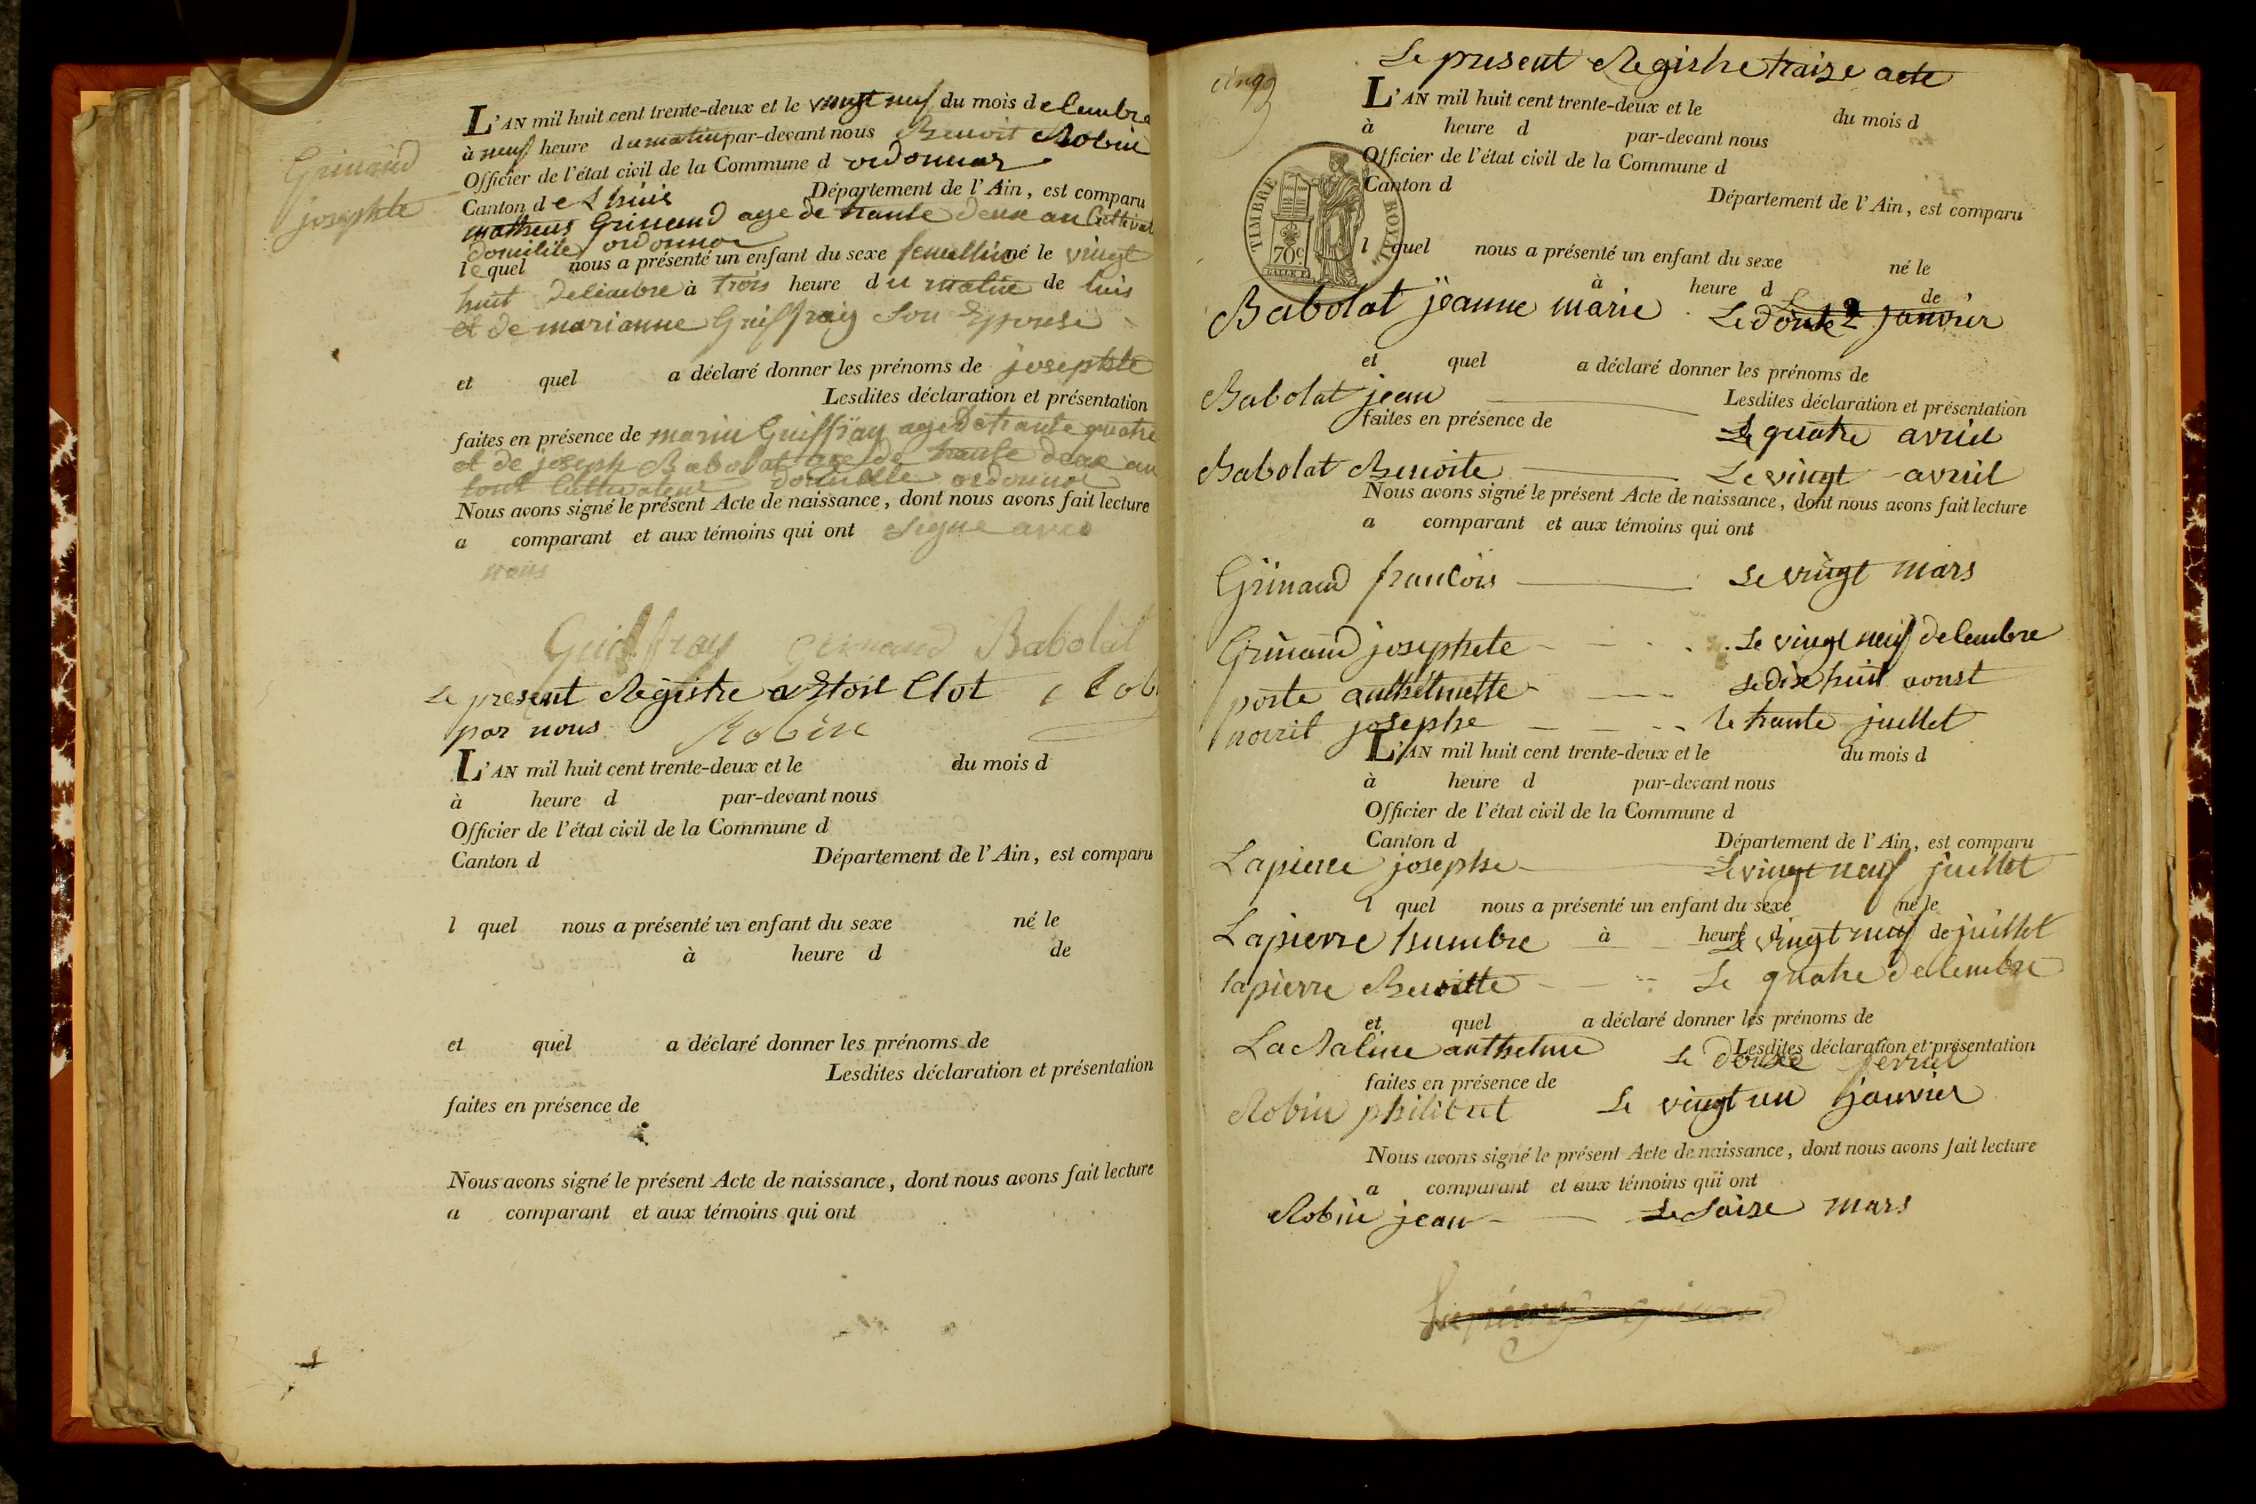 Grinand
josephte
L'AN mil huit cent trente-deux et le vingt neuf du mois de lembre
à neuf heure du matin par-devant nous Benoit Robin
Officier de l'état civil de la Commune d ordonnaz
Canton de Lhuis Département de l'Ain, est comparu
matheus Grinand age de trante deux an Cultivat
domicilié ordonnaz
lequel nous a présenté un enfant du sexe femellin né le vingt
huit delembre à trois heure du matin de luis
et de marianne Guiffray son Epouse
et quel a déclaré donner les prénoms de josephte
Lesdites déclaration et présentation
faites en présence de Guiffray age de trante quatre
et de joseph Babolat age de trante deux an
tout Cultivateur domicilié ordonnaz
Nous avons signé le présent Acte de naissance, dont nous avons fait lecture
a comparant et aux témoins qui ont signe avec
nous
Guiffray Grinand Babolat
Le present Registre a Etoit Clot
par nous Robin
L'AN mil huit cent trente-deux et le du mois d
à heure d par-devant nous
Officier de l'état civil de la Commune d
Canton d Département de l'Ain, est comparu
l quel nous a présenté un enfant du sexe né le
à heure d de
et quel a déclaré donner les prénoms de
Lesdites déclaration et présentation
faites en présence de
Nous avons signé le présent Acte de naissance, dont nous avons fait lecture
a comparant et aux témoins qui ont
Le present Registre traize acte
cinq
L'AN mil huit cent trente-deux et le du mois d
à heure d par-devant nous
Officier de l'état civil de la Commune d
Canton d Département de l'Ain, est comparu
TIMBRE ROYAL
70c.
l quel nous a présenté un enfant du sexe né le
à heure d de
Babolat jeanne marie Le 2 janvier
et quel a déclaré donner les prénoms de
Babolat jean Lesdites déclaration et présentation
faites en présence de Le quatre avril
Babolat Benoite Le vingt avril
Nous avons signé le présent Acte de naissance, dont nous avons fait lecture
a comparant et aux témoins qui ont
Grinand francois Le vingt mars
Grinand josephete Le vingt neuf delembre
porte anthelmette Le dix huit aoust
josephe le trante juillet
L'AN mil huit cent trente-deux et le du mois d
à heure d par-devant nous
Officier de l'état civil de la Commune d
Canton d Département de l'Ain, est comparu
Lapierre josephe Le vingt neuf juillet
l quel nous a présenté un enfant du sexe né le
Lapierre humbre à heure d Le vingt neuf de juillet
lapierre Benoitte Le quatre delembre
et quel a déclaré donner les prénoms de
anthelme Lesdites déclaration et présentation
Le douze
faites en présence de
Robin philibert Le vingt un janvier
Nous avons signé le présent Acte de naissance, dont nous avons fait lecture
a comparant et aux témoins qui ont
Robin jean Le saize mars